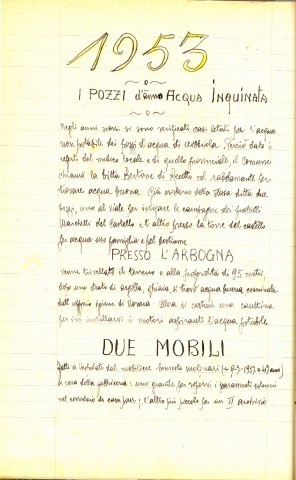 1953
I POZZI d'anno ACQUA INQUINATA
Negli anni scorsi si sono verificati casi letali per l'acqua
non potabile dei pozzi di acqua di Perciò dato i
referti del medico locale e di quello provinciale, il Comune
chiamò la Ditta Bertone di Recetto col rabdomante per
trovare acqua buona. Già esistono della stessa ditta due
pozzi, uno al viale per irrigare le campagne dei fratelli
Marchetti del Castello e l'altro presso la torre del castello
per acqua uso famiglia e pel bestiame
PRESSO L'ARBOGNA
venne trivellato il terreno e alla profondità di 95 metri
dopo uno strato di argilla, ghiaia, si trovò acqua buona, esaminata
dall'ufficio igiene di Novara. si costruì una casettina
per ivi installarvi i motori aspiranti l'acqua potabile
DUE MOBILI
fatti a Vespolate dal mobiliere Ernesto Molinari
a cura della fabbriceria: uno grande per riporvi i paramenti solenni
nel corridoio di casa parr; l'altro più piccolo per un II archivio